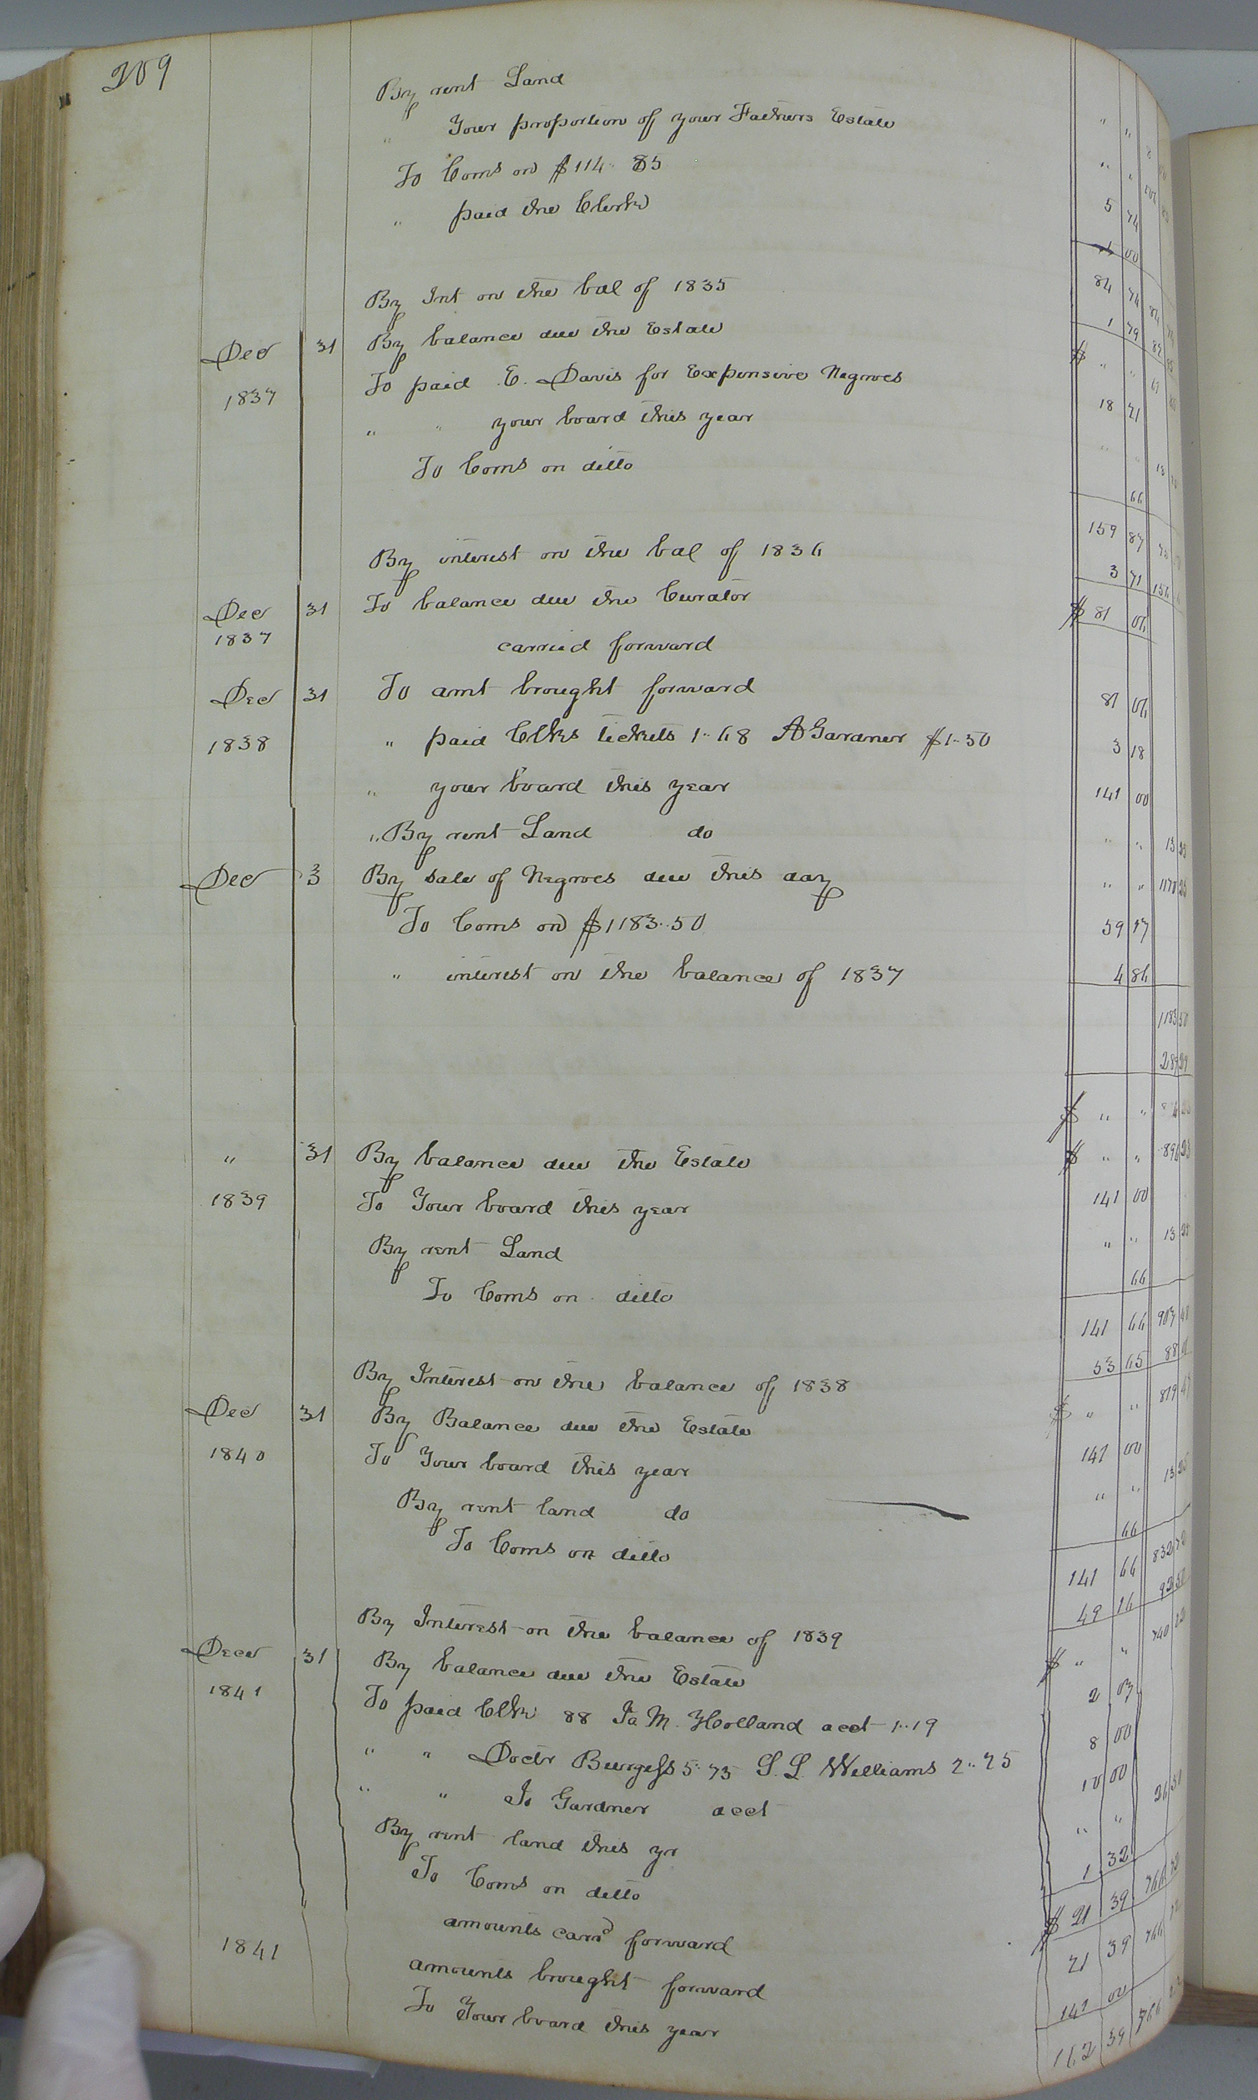 209
By rent Land
" Your proportion of your Fathers Estate " "
To Coms on $114.85 5 74
" paid the Clerk 00
By Int on the bal of 1835 84 74
Dec 31 By balance due the Estate 1 79
1837 To paid E. Davis for Expensive Negroes $ " "
" " your board this year 18 71
To Coms on ditto
66
159 87
By interest on the bal of 1836 3 71
Dec 31 To balance due the Curator $ 81 06
1837 carried forward
Dec 31 To amt brought forward 81 06
1838 " paid Clks tickets 1.68 A Gardner $1.50 3 18
" your board this year 141 00
" By rent Land do " " 13
Dec 3 By sale of Negroes due this day " " 1170
To Coms on $1183.50 59 17
" interest on the balance of 1837 4 86
1183 50
289
$ " "
" 31 By balance due the Estate $ " "
1839 To Your board this year 141 00
By rent Land " " 13
To Coms on ditto 66
141 66
By Interest on the balance of 1838 53 65 88
Dec 31 By Balance due the Estate $ " "
1840 To Your board this year 141 00
By rent land do " "
To Coms on ditto 66
141 66 832
By Interest on the balance of 1839 49 16 92
Dece 31 By balance due the Estate $ " " 740
1841 To paid Clk 88 Ja M. Holland acct 1.19 2 07
" " Doctr Burgess 5.75 S. L. Williams 2.25 8 00
" " Jo Gardner acct 10 00
By rent land this yr " " 26
To Coms on ditto 1 32
amounts card forward $ 21 39 766
1841 amounts brought forward 21 39 766
To Your board this year 141 00
162 39 766